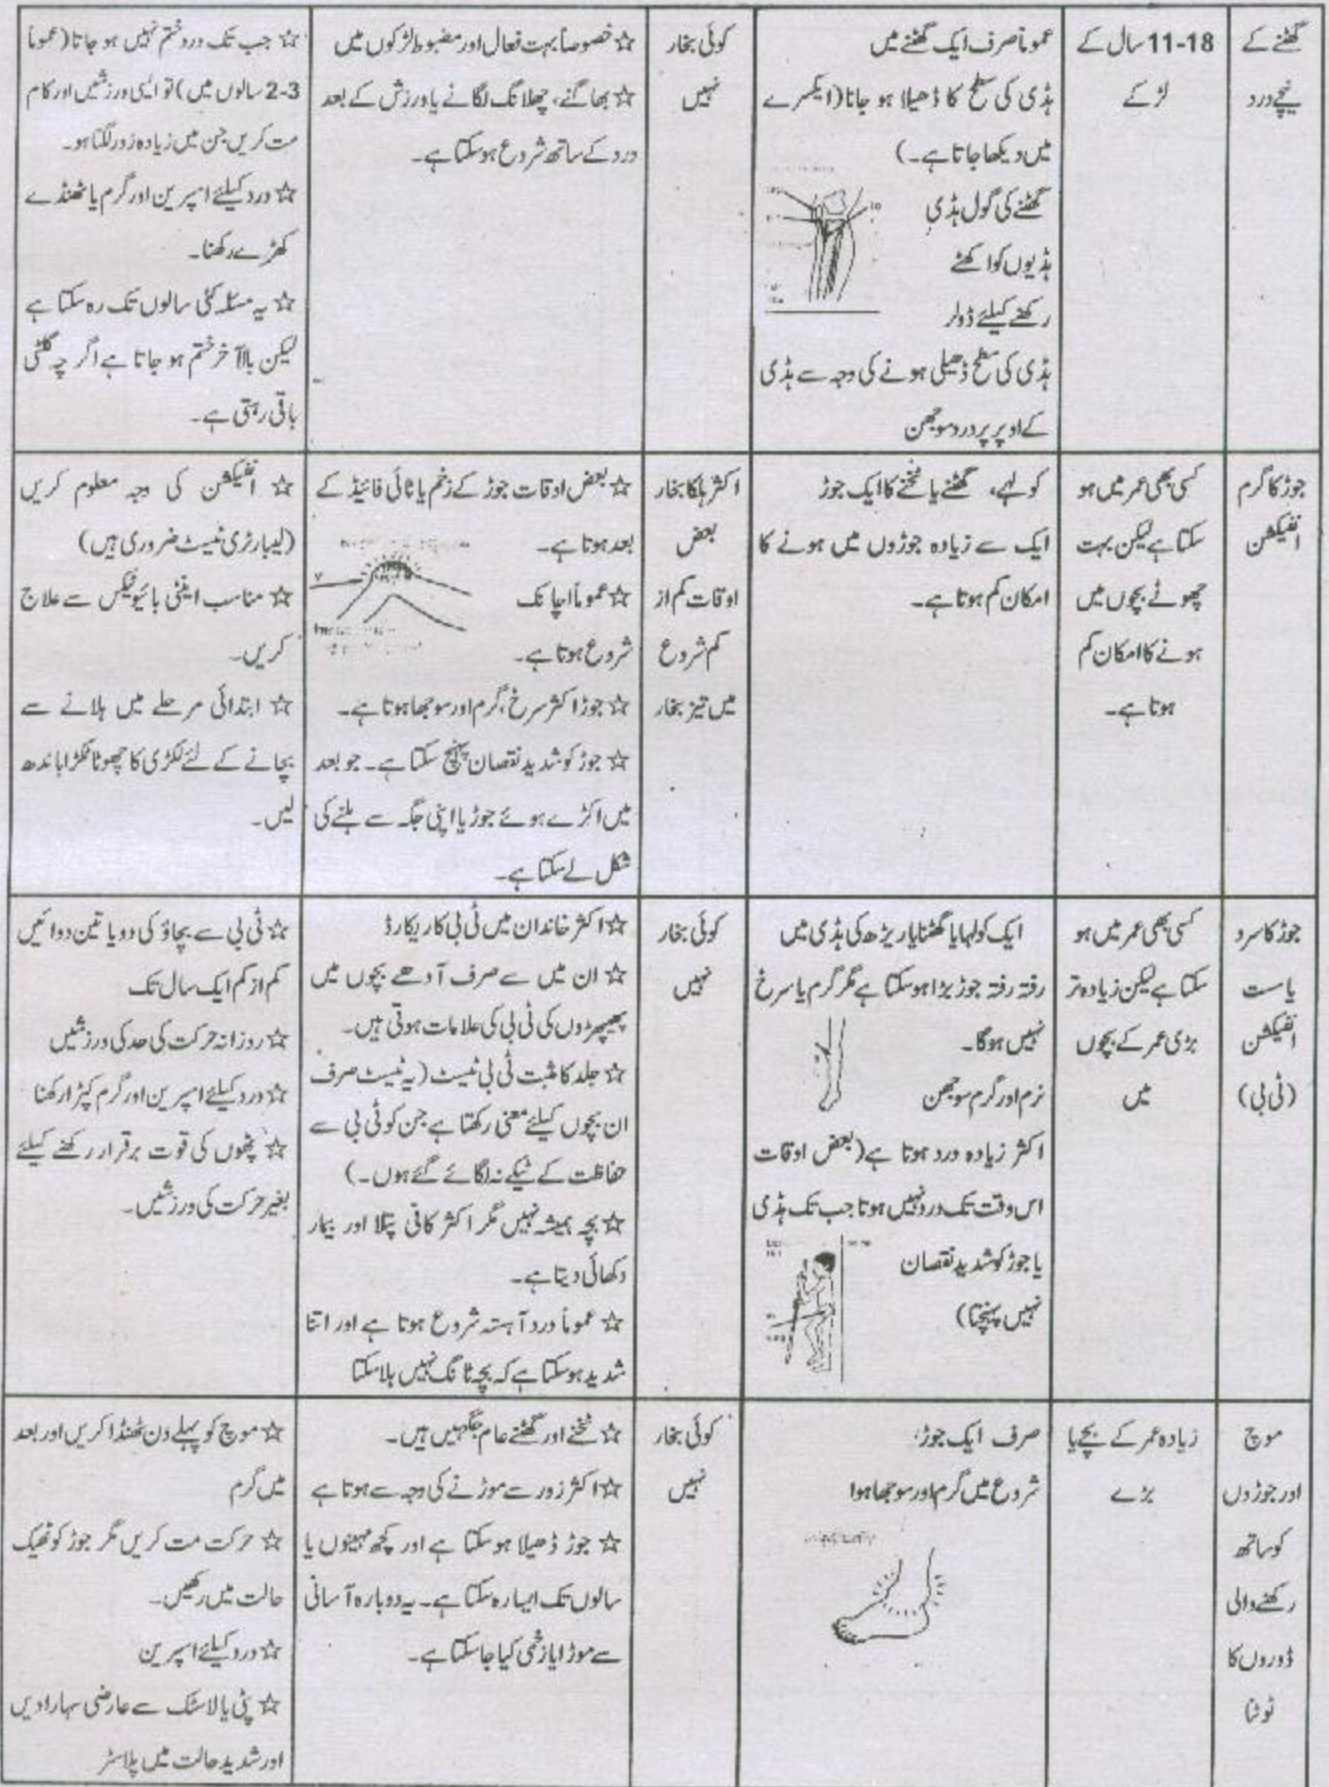 گھٹنے کے
نیچے درد
11-18 سال کے
لڑکے
عموماً صرف ایک گھٹنے میں
ہڈی کی سطح کا ڈھیلا ہو جانا (ایکسرے
میں دیکھا جاتا ہے۔)
گھٹنے کی گول ہڈی
ہڈیوں کو اکھٹے
رکھنے کیلئے ڈولر
ہڈی کی سطح ڈھیلی ہونے کی وجہ سے ہڈی
کے اوپر پر درد سوجھن
کوئی بخار
نہیں
☆ خصوصاً بہت فعال اور مضبوط لڑکوں میں
☆ بھاگنے، چھلانگ لگانے یا ورزش کے بعد
درد کے ساتھ شروع ہو سکتا ہے۔
☆ جب تک درد ختم نہیں ہو جاتا (عموماً
2-3 سالوں میں) تو ایسی ورزشیں اور کام
مت کریں جن میں زیادہ زور لگتا ہو۔
☆ درد کیلئے اسپرین اور گرم یا ٹھنڈے
کھڑے رکھنا۔
☆ یہ مسئلہ کئی سالوں تک رہ سکتا ہے
لیکن بالآخر ختم ہو جاتا ہے اگر چہ گلٹی
باقی رہتی ہے۔
جوڑ کا گرم
انفیکشن
کسی بھی عمر میں ہو
سکتا ہے لیکن بہت
چھوٹے بچوں میں
ہونے کا امکان کم
ہوتا ہے۔
کولہے، گھٹنے یا ٹخنے کا ایک جوڑ
ایک سے زیادہ جوڑوں میں ہونے کا
امکان کم ہوتا ہے۔
اکثر ہلکا بخار
بعض
اوقات کم از
کم شروع
میں تیز بخار
☆ بعض اوقات جوڑ کے زخم یا ٹائی فائیڈ کے
بعد ہوتا ہے۔
☆ عموماً اچانک
شروع ہوتا ہے۔
☆ جوڑ اکثر سرخ، گرم اور سوجھا ہوتا ہے۔
☆ جوڑ کو شدید نقصان پہنچ سکتا ہے۔ جو بعد
میں اکڑے ہوئے جوڑ یا اپنی جگہ سے ہلنے کی
شکل لے سکتا ہے۔
☆ انفیکشن کی وجہ معلوم کریں
(لیبارٹری ٹیسٹ ضروری ہیں)
☆ مناسب اینٹی بائیوٹکس سے علاج
کریں۔
☆ ابتدائی مرحلے میں ہلانے سے
بچانے کے لئے لکڑی کا چھوٹا ٹکڑا باندھ
لیں۔
جوڑ کا سرد
یا ست
انفیکشن
(ٹی بی)
کسی بھی عمر میں ہو
سکتا ہے لیکن زیادہ تر
بڑی عمر کے بچوں
میں
ایک کولہا یا گھٹنا یا ریڑھ کی ہڈی میں
رفتہ رفتہ جوڑ بڑا ہو سکتا ہے مگر گرم یا سرخ
نہیں ہوگا۔
نرم اور گرم سوجھن
اکثر زیادہ درد ہوتا ہے (بعض اوقات
اس وقت تک درد نہیں ہوتا جب تک ہڈی
یا جوڑ کو شدید نقصان
نہیں پہنچتا)
کوئی بخار
نہیں
☆ اکثر خاندان میں ٹی بی کا ریکارڈ
☆ ان میں سے صرف آدھے بچوں میں
پھیپھڑوں کی ٹی بی کی علامات ہوتی ہیں۔
☆ جلد کا مثبت ٹی بی ٹیسٹ (یہ ٹیسٹ صرف
ان بچوں کیلئے معنی رکھتا ہے جن کو ٹی بی سے
حفاظت کے ٹیکے نہ لگائے گئے ہوں۔)
☆ بچہ ہمیشہ نہیں مگر اکثر کافی پتلا اور بیمار
دکھائی دیتا ہے۔
☆ عموماً درد آہستہ شروع ہوتا ہے اور اتنا
شدید ہو سکتا ہے کہ بچہ ٹانگ نہیں ہلا سکتا
☆ ٹی بی سے بچاؤ کی دو یا تین دوائیں
کم از کم ایک سال تک
☆ روزانہ حرکت کی حد کی ورزشیں
☆ درد کیلئے اسپرین اور گرم کپڑا رکھنا
☆ پٹھوں کی قوت برقرار رکھنے کیلئے
بغیر حرکت کی ورزشیں۔
موچ
اور جوڑوں
کو ساتھ
رکھنے والی
ڈوروں کا
ٹوٹنا
زیادہ عمر کے بچے یا
بڑے
صرف ایک جوڑ،
شروع میں گرم اور سوجھا ہوا
کوئی بخار
نہیں
☆ ٹخنے اور گھٹنے عام جگہیں ہیں۔
☆ اکثر زور سے موڑنے کی وجہ سے ہوتا ہے
☆ جوڑ ڈھیلا ہو سکتا ہے اور کچھ مہینوں یا
سالوں تک ایسا رہ سکتا ہے۔ یہ دوبارہ آسانی
سے موڑا یا زخمی کیا جا سکتا ہے۔
☆ موچ کو پہلے دن ٹھنڈا کریں اور بعد
میں گرم
☆ حرکت مت کریں مگر جوڑ کو ٹھیک
حالت میں رکھیں۔
☆ درد کیلئے اسپرین
☆ پٹی یا لاسٹک سے عارضی سہارا دیں
اور شدید حالت میں پلاسٹر